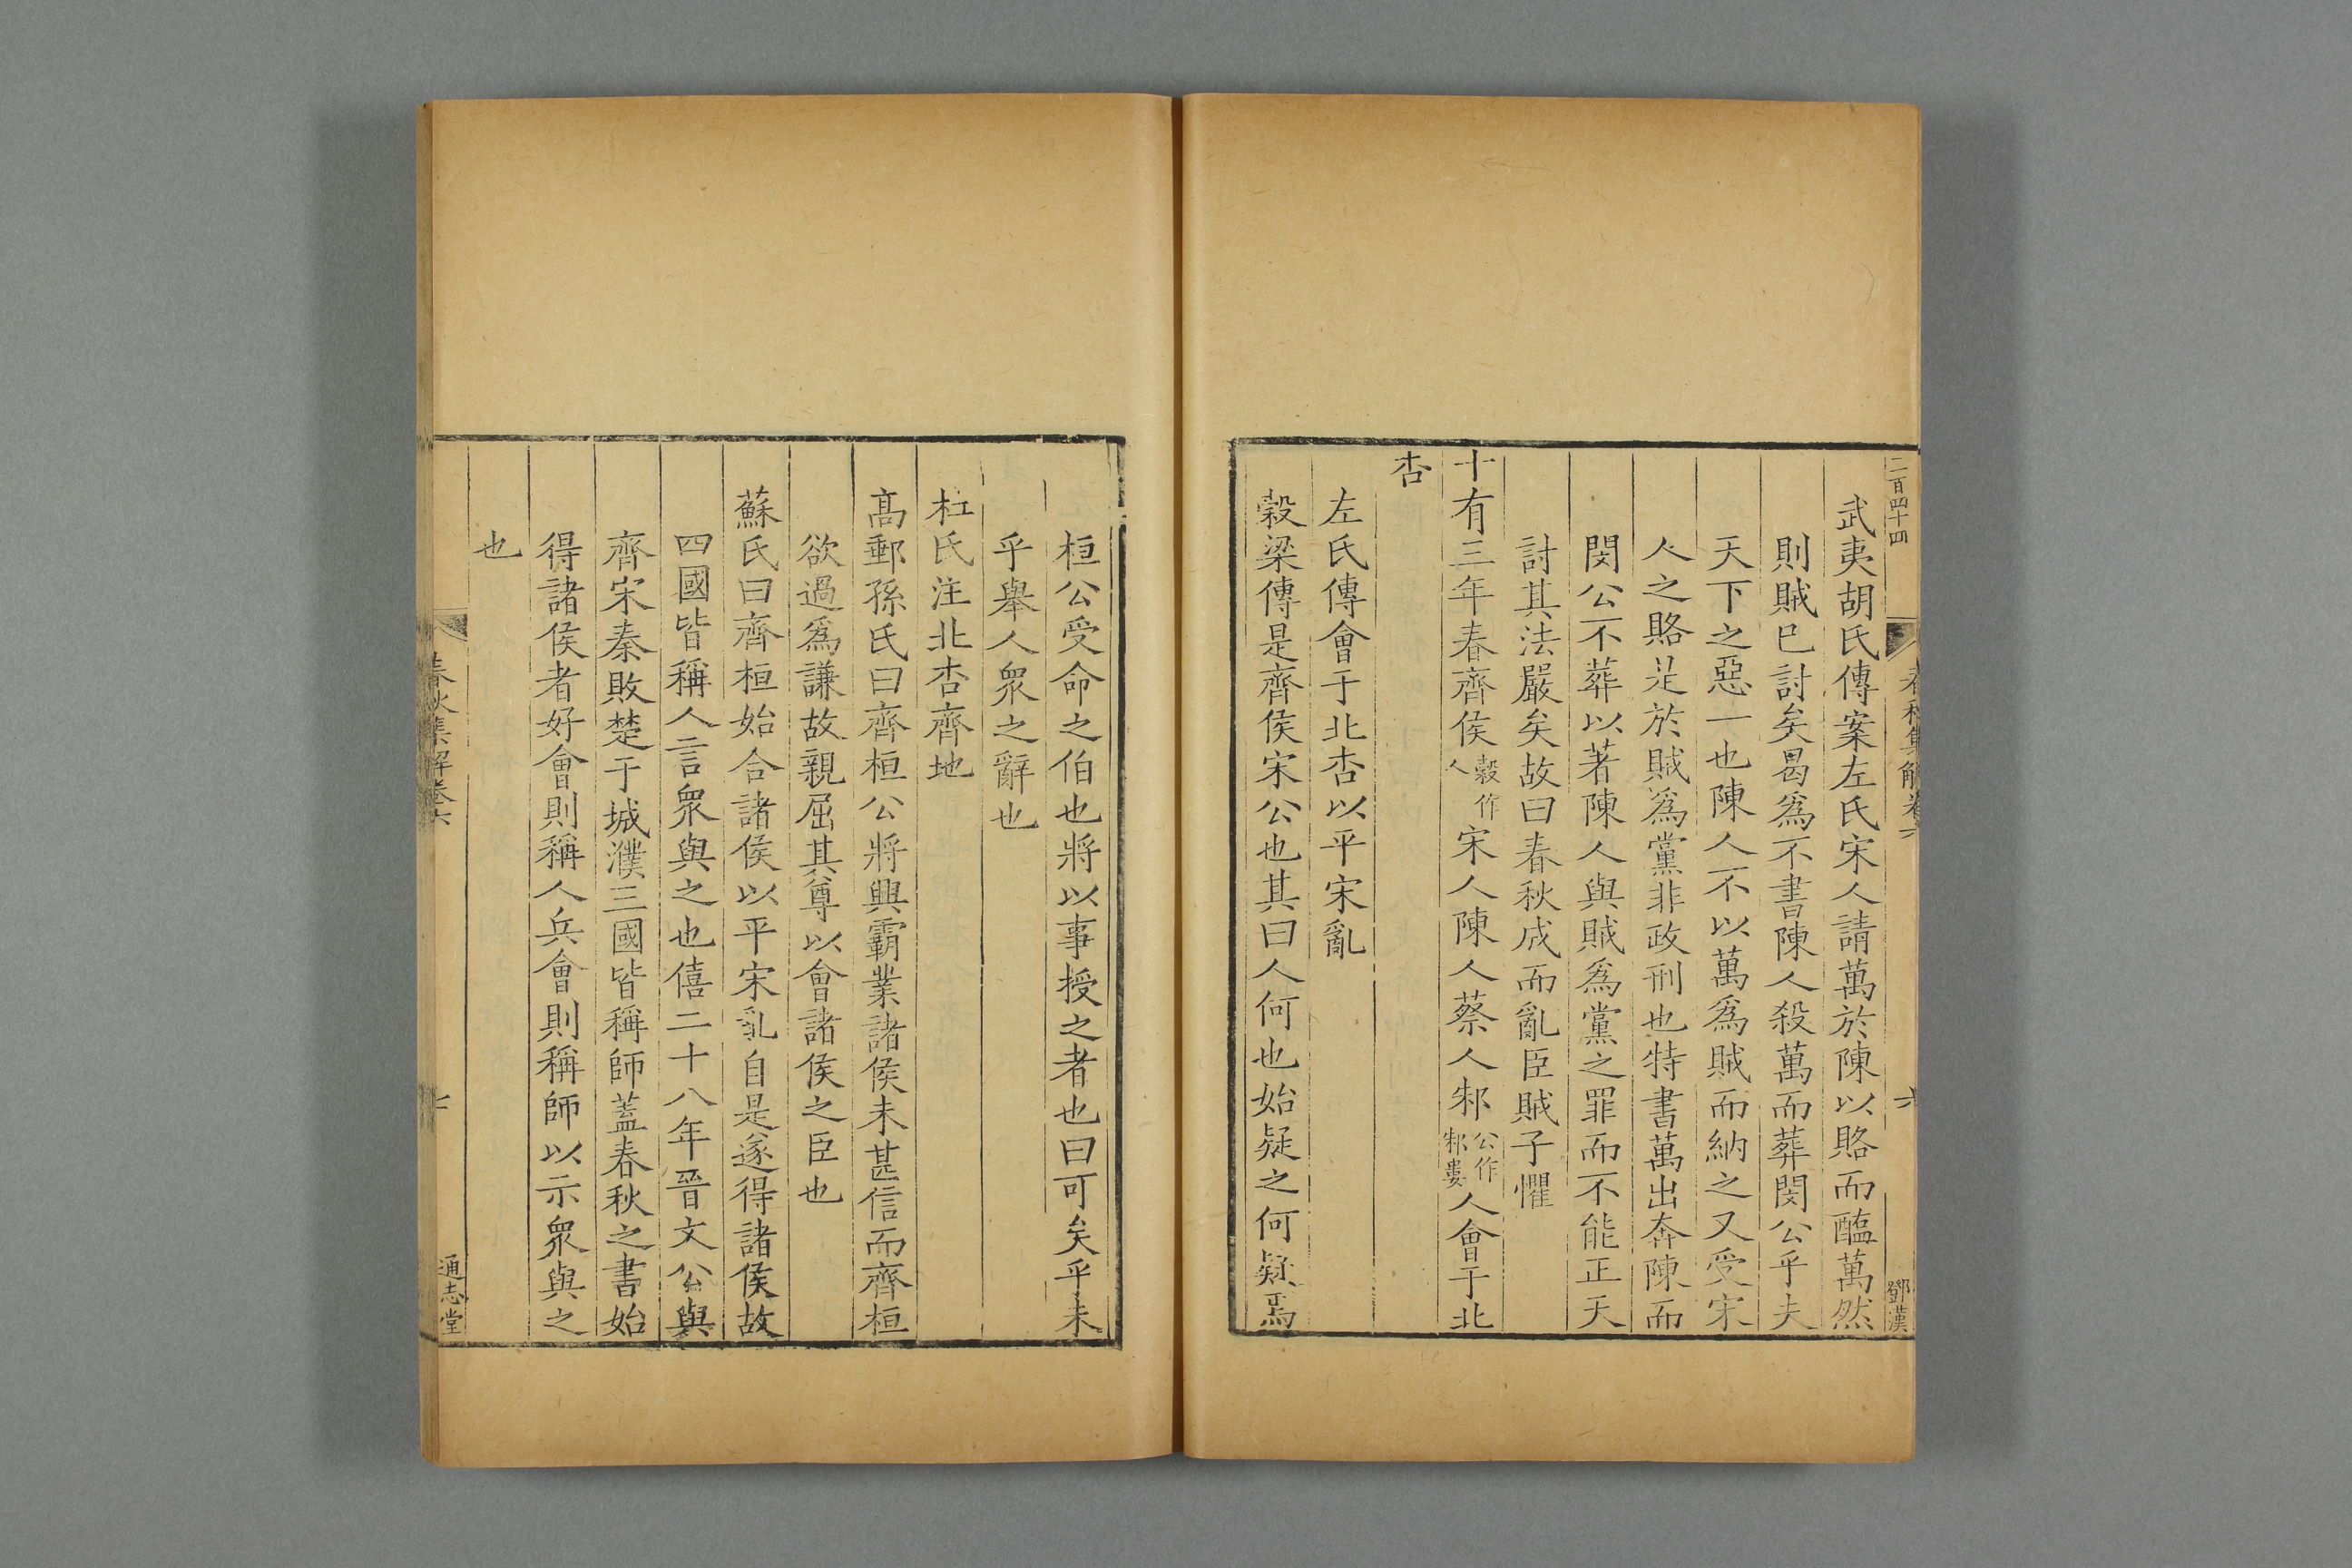 二百四十四 春秋集解卷六 六 鄧漢
武夷胡氏傳案左氏宋人請萬於陳以賂而醢萬然
則賊巳討矣曷爲不書陳人殺萬而葬閔公乎夫
天下之惡一也陳人不以萬爲賊而納之又受宋
人之賂是於賊爲黨非政刑也特書萬出奔陳而
閔公不葬以著陳人與賊爲黨之罪而不能正天
討其法嚴矣故曰春秋成而亂臣賊子懼
十有三年春齊侯穀作人宋人陳人蔡人邾公作邾婁人會于北
杏
左氏傳會于北杏以平宋亂
穀梁傳是齊侯宋公也其曰人何也始疑之何疑焉
桓公受命之伯也將以事授之者也曰可矣乎未
乎舉人衆之辭也
杜氏注北杏齊地
高郵孫氏曰齊桓公將興霸業諸侯未甚信而齊桓
欲過爲謙故親屈其尊以會諸侯之臣也
蘇氏曰齊桓始合諸侯以平宋亂自是遂得諸侯故
四國皆稱人言衆與之也僖二十八年晉文公與
齊宋秦敗楚于城濮三國皆稱師蓋春秋之書始
得諸侯者好會則稱人兵會則稱師以示衆與之
也
春秋集解卷六 通志堂